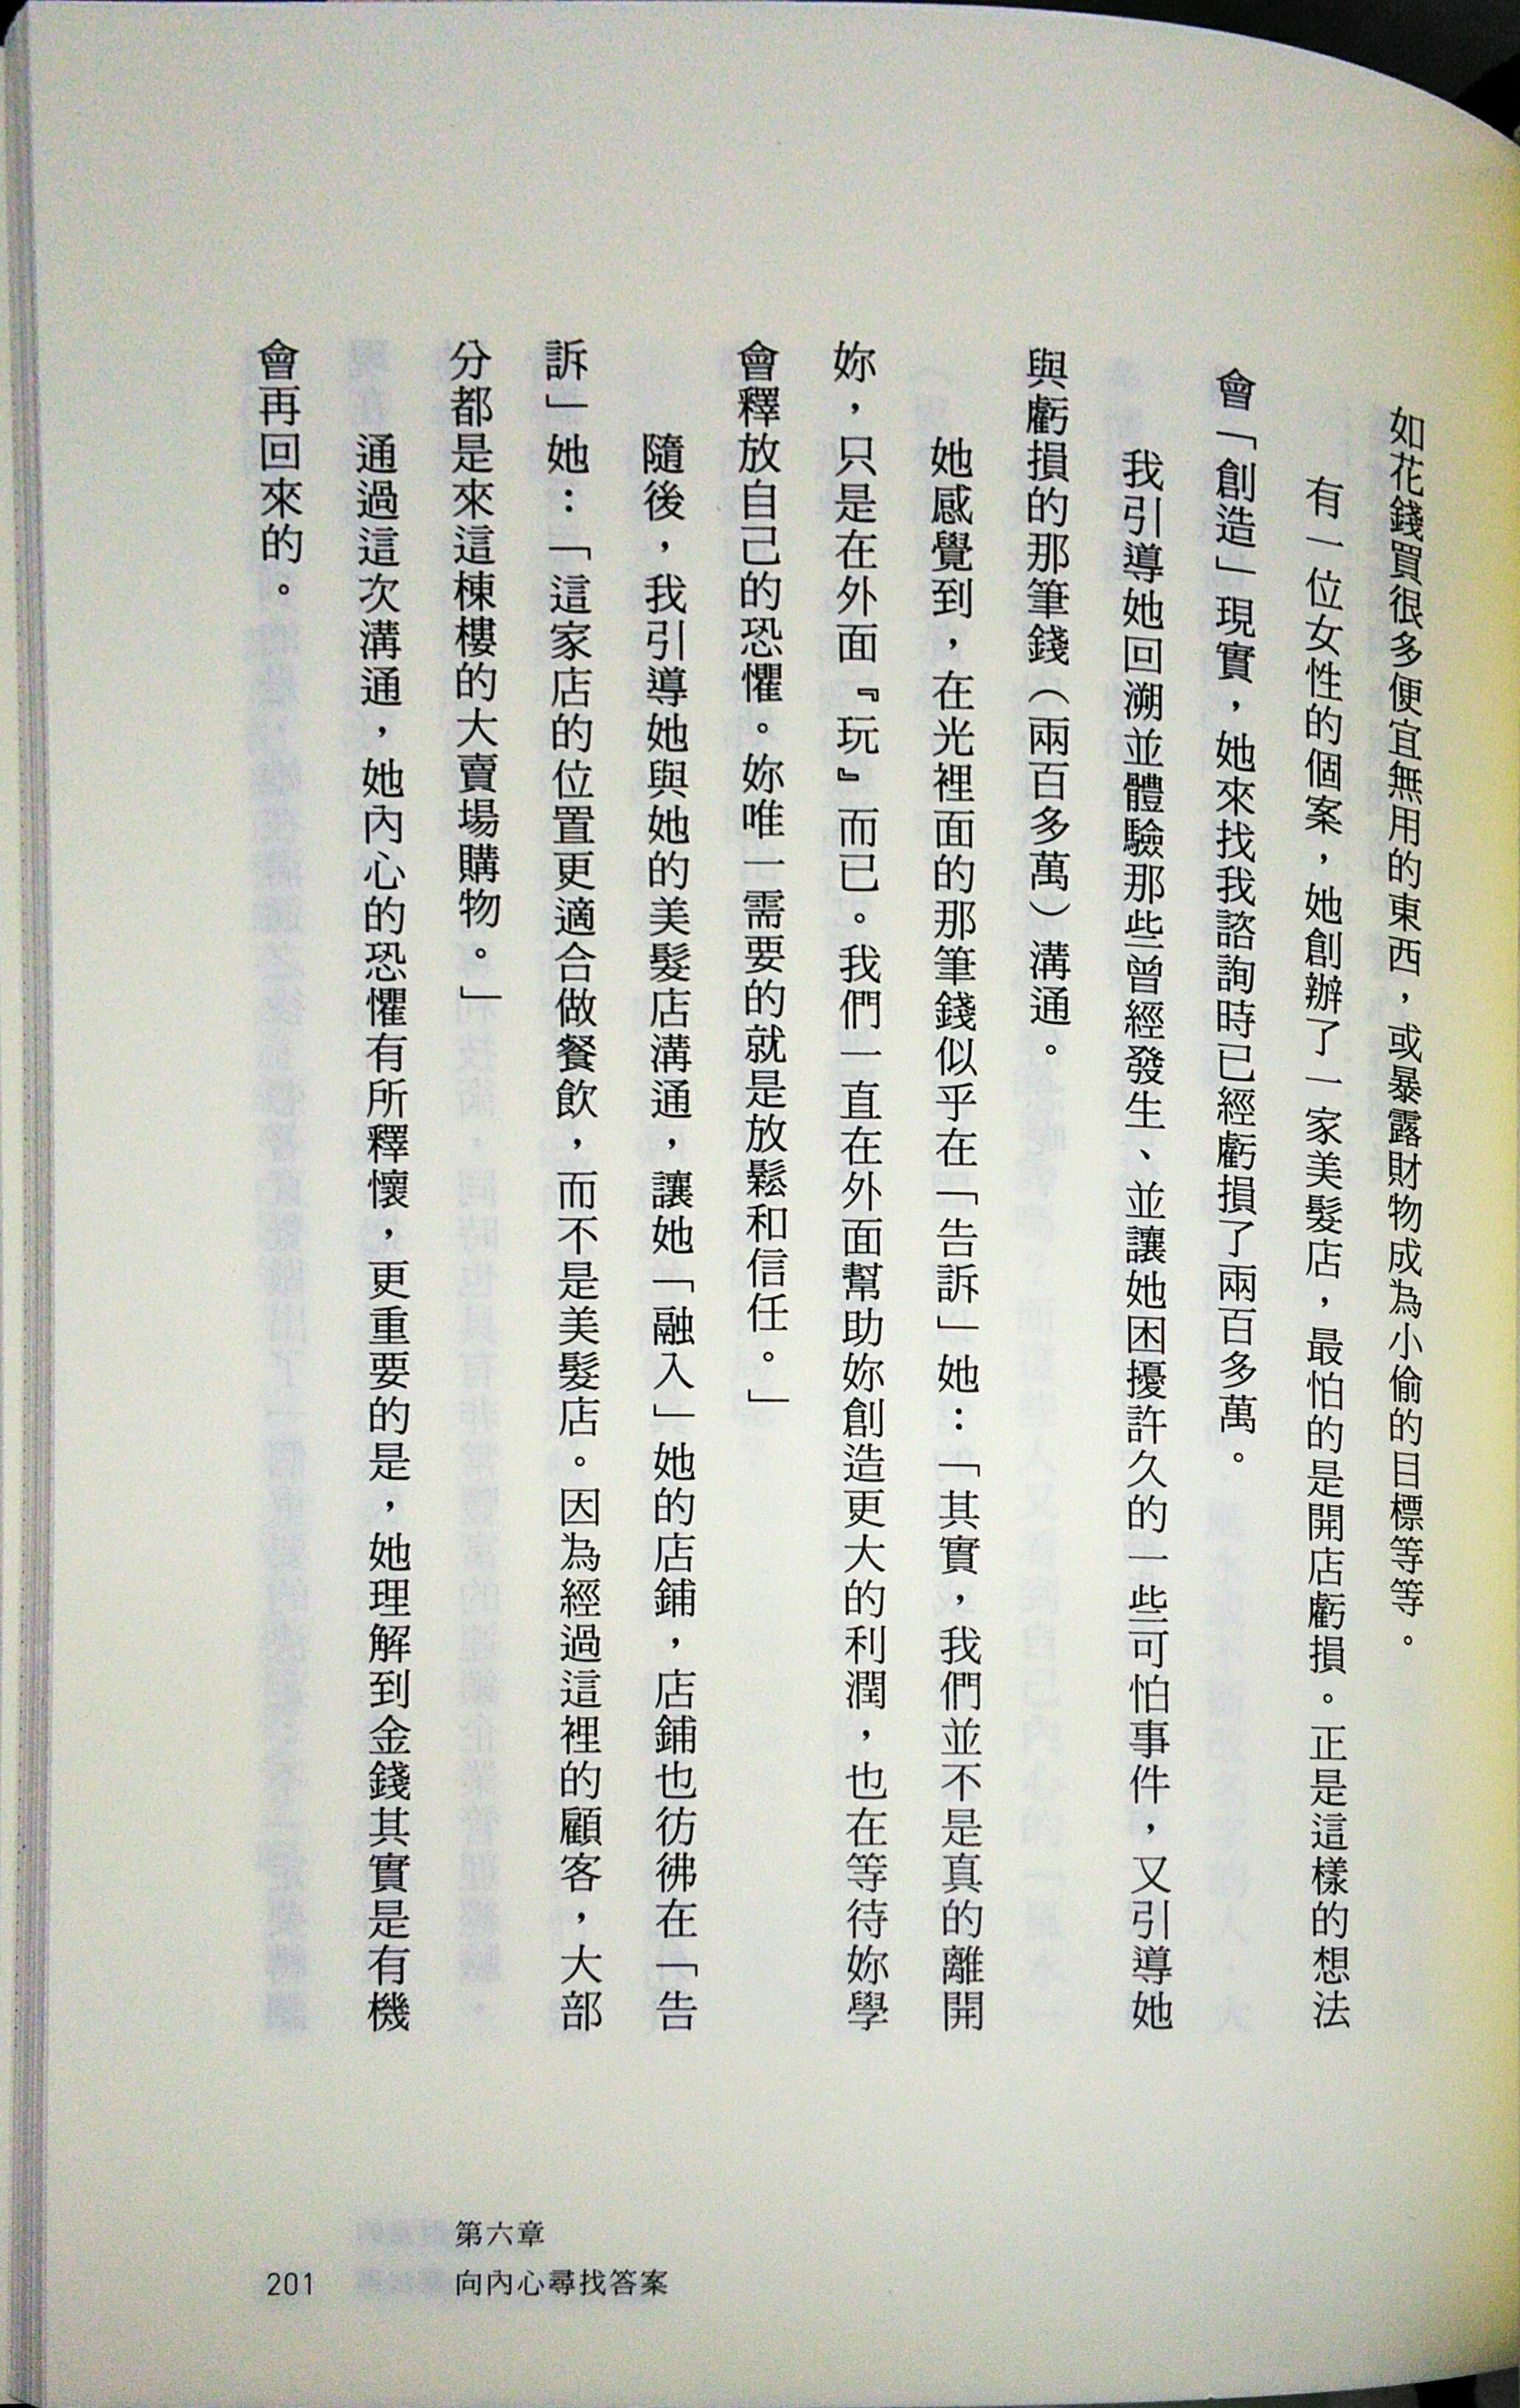 如花錢買很多便宜無用的東西，或暴露財物成為小偷的目標等等。
有一位女性的個案，她創辦了一家美髮店，最怕的是開店虧損。正是這樣的想法
會「創造」現實，她來找我諮詢時已經虧損了兩百多萬。
我引導她回溯並體驗那些曾經發生、並讓她困擾許久的一些可怕事件，又引導她
與虧損的那筆錢（兩百多萬）溝通。
她感覺到，在光裡面的那筆錢似乎在「告訴」她：「其實，我們並不是真的離開
妳，只是在外面『玩』而已。我們一直在外面幫助妳創造更大的利潤，也在等待妳學
會釋放自己的恐懼。妳唯一需要的就是放鬆和信任。」
隨後，我引導她與她的美髮店溝通，讓她「融入」她的店鋪，店鋪也彷彿在「告
訴」她：「這家店的位置更適合做餐飲，而不是美髮店。因為經過這裡的顧客，大部
分都是來這棟樓的大賣場購物。」
通過這次溝通，她內心的恐懼有所釋懷，更重要的是，她理解到金錢其實是有機
會再回來的。
第六章
向內心尋找答案
201